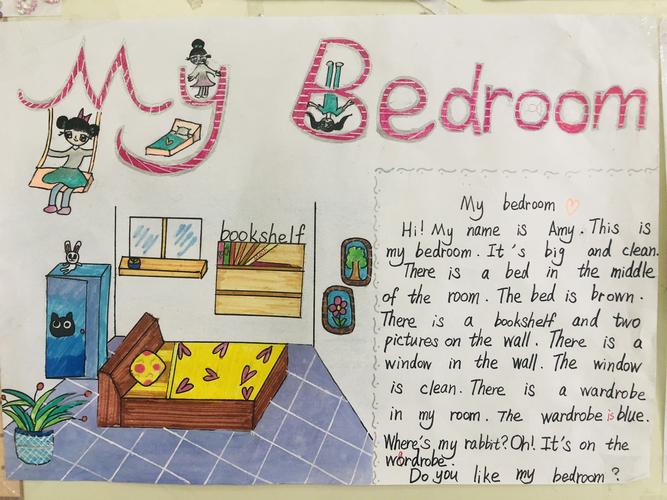 My Bedroom
bookshelf
My bedroom
Hi! My name is Amy. This is
my bedroom. It's big and clean.
There is a bed in the middle
of the room. The bed is brown.
There is a bookshelf and two
pictures on the wall. There is a
window in the wall. The window
is clean. There is a wardrobe
in my room. The wardrobe is blue.
Where's my rabbit? Oh! It's on the
wardrobe.
Do you like my bedroom?